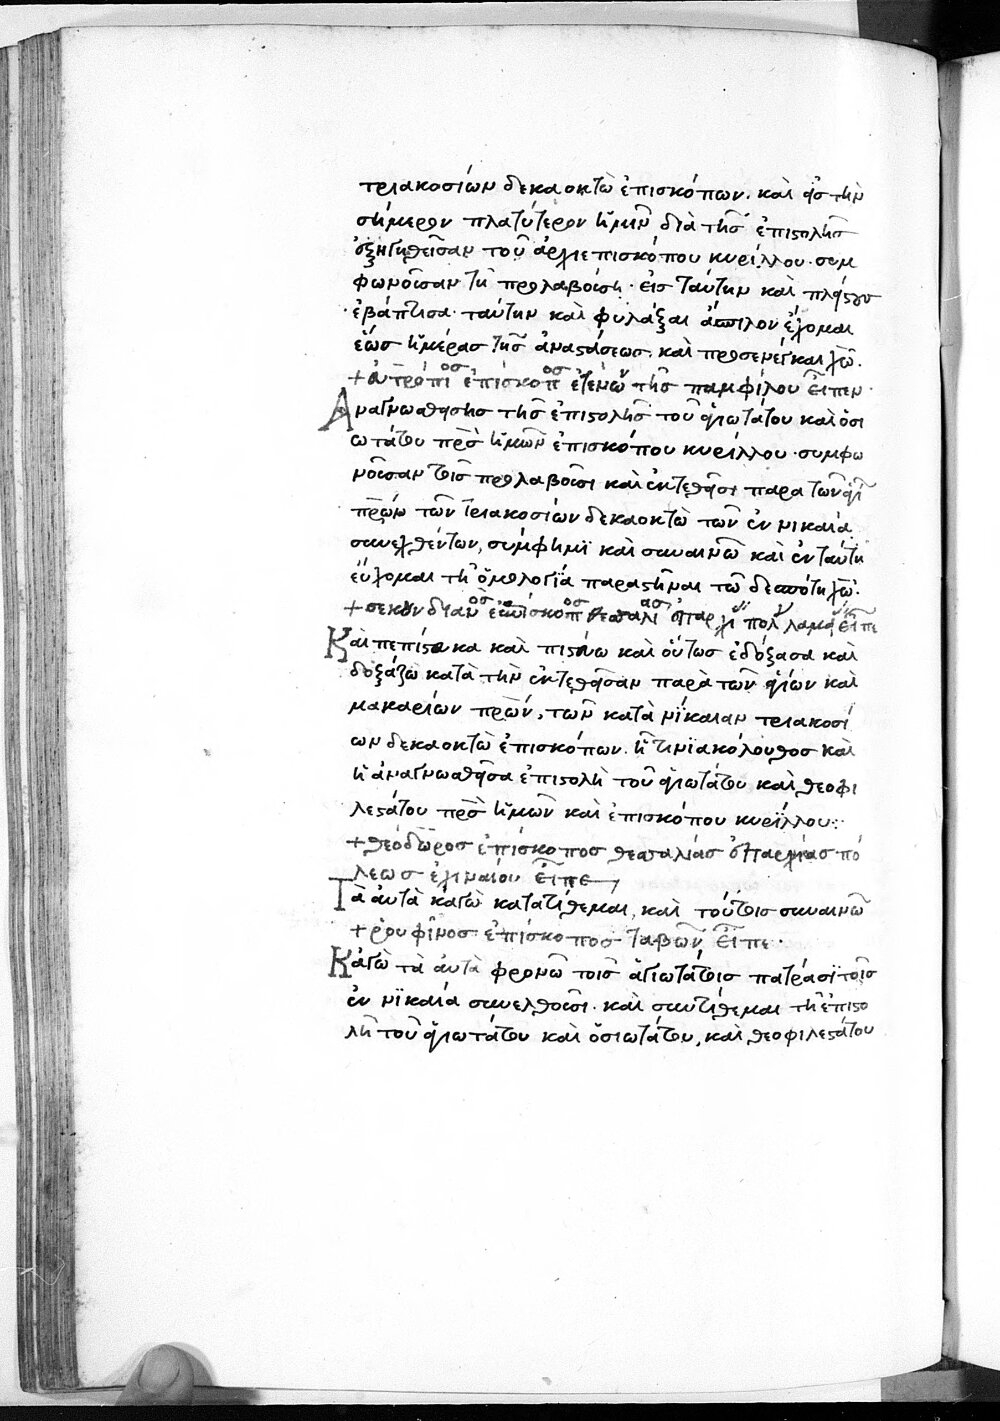 τριακοσίων δεκαοκτὼ ἐπισκόπων. καὶ εἰς τὴν
σήμερον πλατύτερον ἡμῖν διὰ τῆς ἐπιστολῆς
ἐξηγηθεῖσαν τοῦ ἀρχιεπισκόπου κυρίλλου. συμ
φωνοῦσαν τῆ προλαβούση. εἰς ταύτην καὶ
ἐβάπτισα. ταύτην καὶ φυλάξαι ἄσπιλον εὔχομαι
ἕως ἡμέρας τῆς ἀναστάσεως. καὶ προσενέγκαι χῶ.
+ εὐτρόπι^ος ἐπίσκοπ^ος ἐτένω τῆς παμφίλου εἶπεν.
Ἀναγνωσθείσης τῆς ἐπιστολῆς τοῦ ἁγιωτάτου καὶ ὁσι
ωτάτου πρς ἡμῶν ἐπισκόπου κυρίλλου. συμφω
νούσαν τοῖς προλαβοῦσι καὶ ἐκτεθεῖσι παρα τῶν ἁγί
πρων τῶν τριακοσίων δεκαοκτὼ τῶν ἐν νικαία
συνελθόντων, σύμφημϊ καὶ συναινῶ καὶ ἐν ταύτη
εὔχομαι τῆ ὁμολογία παραστῆναι τῶ δεσπότη χῶ.
+ σεκουνδιαν^ὸς ἐπίσκοπ^ος θεσσαλί^ας ἐπαρχί πόλ λαμί εἶπε
Καὶ πεπίστευκα καὶ πιστεύω καὶ οὕτως ἐδόξασα καὶ
δοξάζω κατὰ τὴν ἐκτεθεῖσαν παρὰ τῶν ἁγίων καὶ
μακαρίων πρων, τῶν κατὰ νίκαιαν τριακοσί
ων δεκαοκτὼ ἐπισκόπων. ἧ τινϊ ἀκόλουθος καὶ
ἡ ἀναγνωσθεῖσα ἐπιστολὴ τοῦ ἁγιωτάτου καὶ θεοφι
λεστάτου πρς ἡμῶν καὶ ἐπισκόπου κυρίλλου:
+ θεόδωρος ἐπίσκοπος θεσσαλίας ἐπαρχίας πό
λεως ἐχιναίου εἶπε
Τὰ αὐτὰ κἀγὼ κατατίθεμαι, καὶ τούτοις συναινῶ
+ ῥουφῖνος ἐπίσκοπος ταβῶν, εἶπε.
Κἀγὼ τὰ αὐτὰ φρονῶ τοῖς ἁγιωτάτοις πατράσι τοῖς
ἐν νϊκαία συνελθοῦσι. καὶ συντίθεμαι τῆ ἐπιστο
λῆ τοῦ ἁγιωτάτου καὶ ὁσιωτάτου, καὶ θεοφιλεστάτου